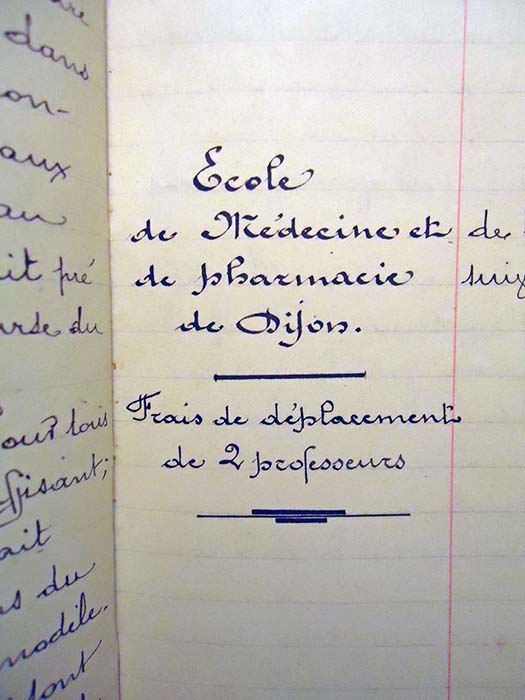 dans
on-
aux
au
it pré
urse du
Pour tous
ffisant;
ait
s du
modèle.
font
Ecole
de Médecine et
de pharmacie
de Dijon.
Frais de déplacement
de 2 professeurs
de
suiv